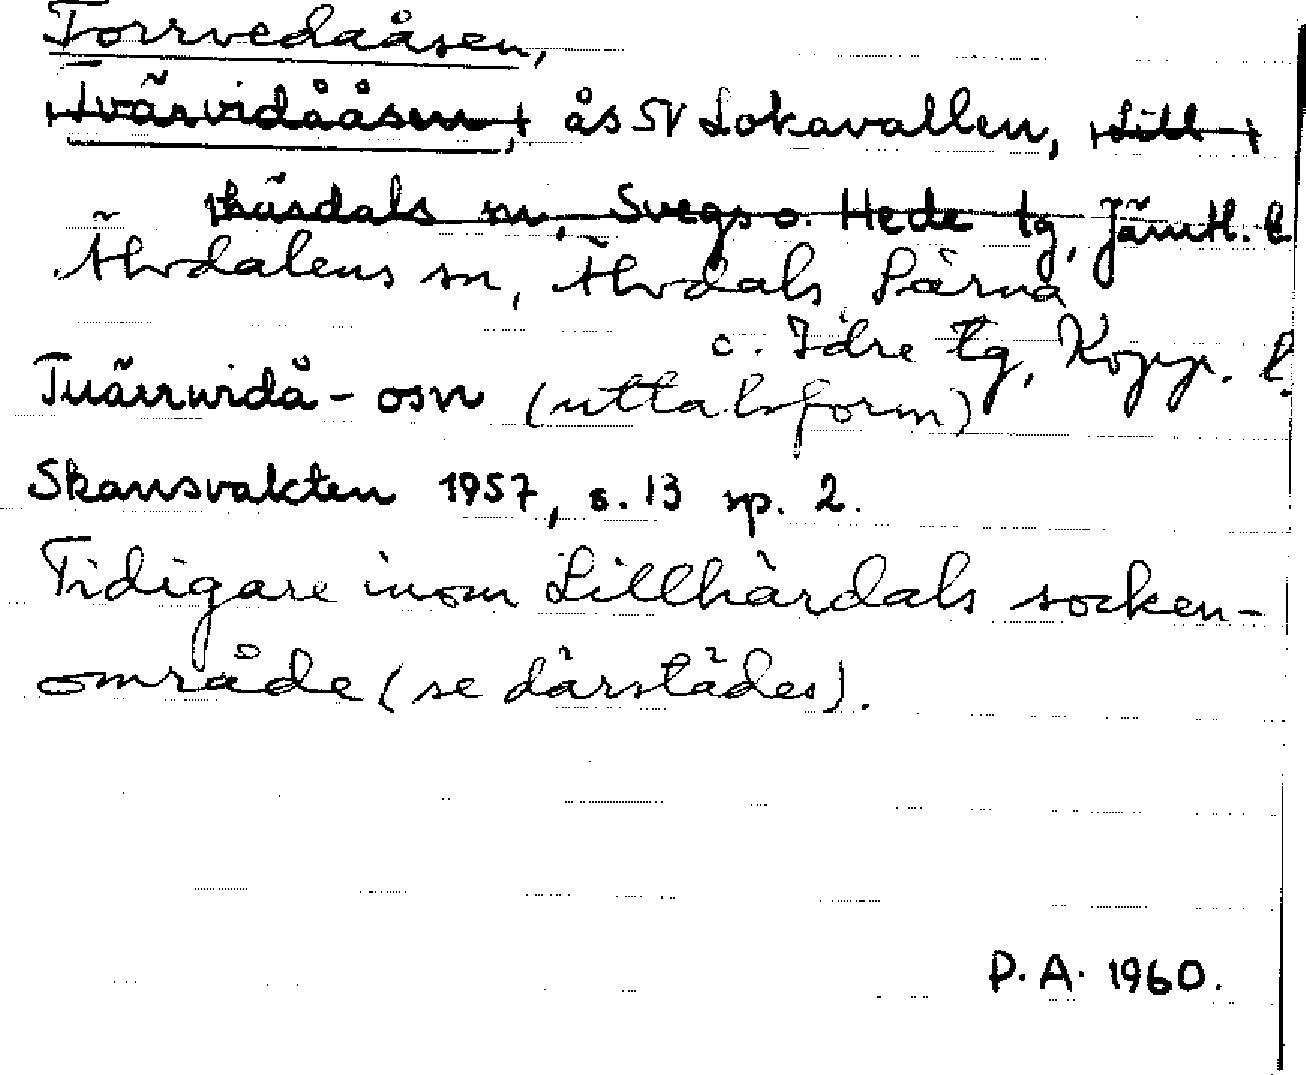 Torrvedaåsen,
Tvärvidååsen, ås SV Lokavallen, Lill-
härdals sn, Svegs o. Hede tg, Jämtl. l.
Älvdalens sn, Älvdals, Särna
o. Idre tg, Kopp. l.
Tuärrwidå-osn (uttalsform)
Skansvakten 1957, s. 13 sp. 2.
Tidigare inom Lillhärdals socken-
område (se därstädes).
P. A. 1960.